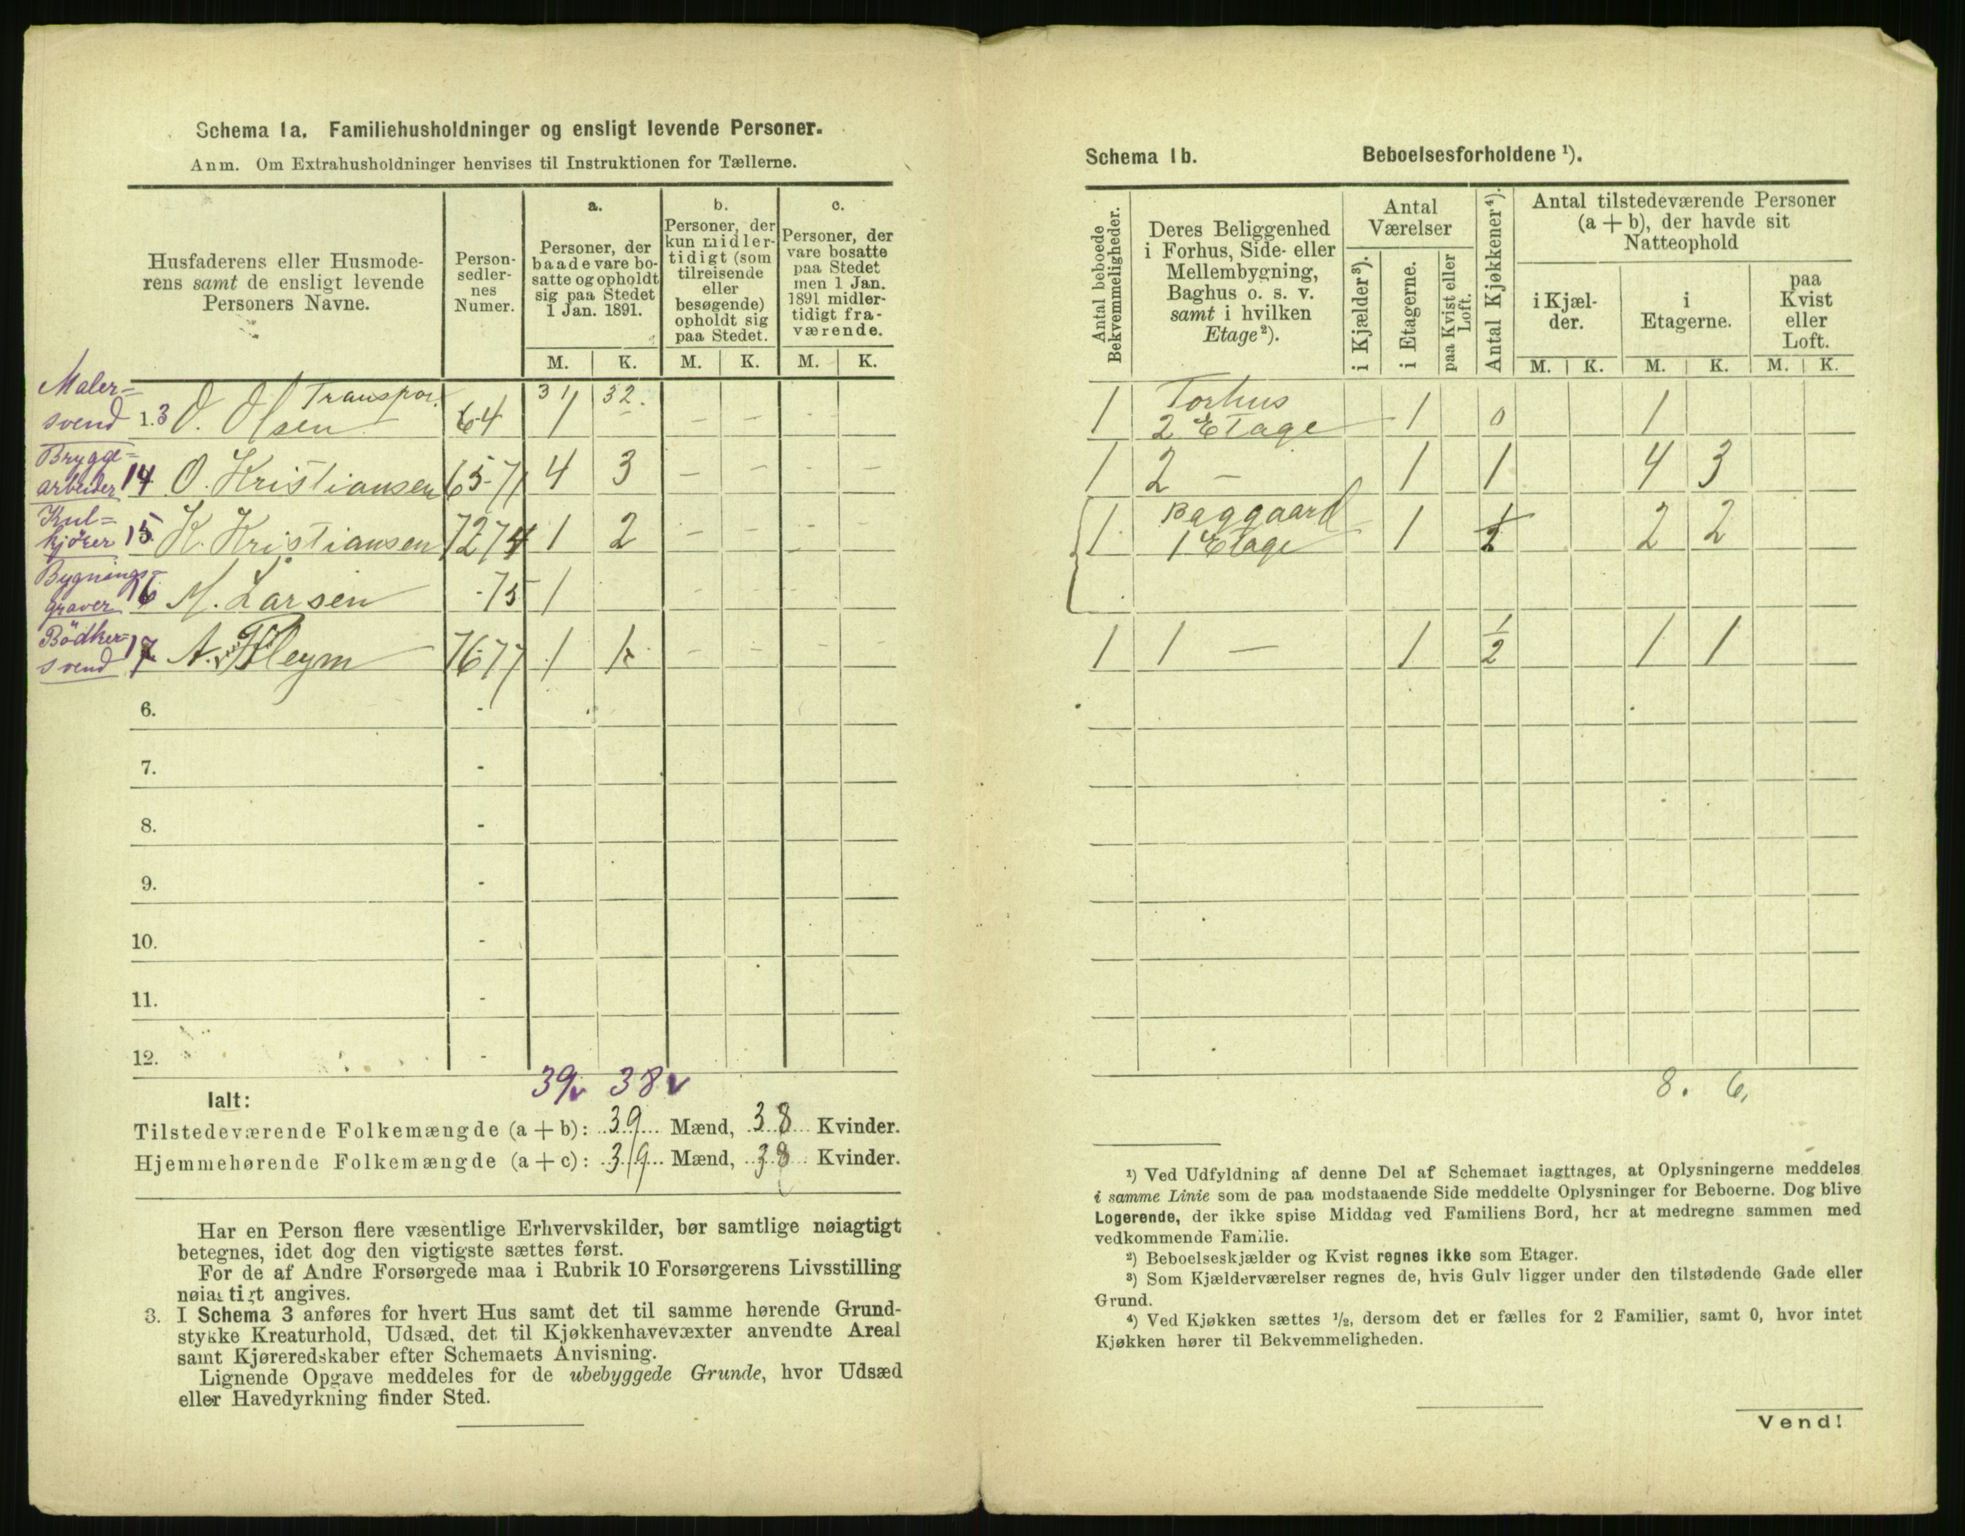 Schema 1a. Familiehusholdninger og ensligt levende Personer.
Anm. Om Extrahusholdninger henvises til Instruktionen for Tællerne.
Husfaderens eller Husmode-
rens samt de ensligt levende
Personers Navne.
Person-
sedler-
nes
Numer.
a.
Personer, der
baade vare bo-
satte og opholdt
sig paa Stedet
1 Jan. 1891.
b.
Personer, der
kun midler-
tidigt (som
tilreisende
eller
besøgende)
opholdt sig
paa Stedet.
c.
Personer, der
vare bosatte
paa Stedet
men 1 Jan.
1891 midler-
tidigt fra-
værende.
M. K. M. K. M. K.
Transpor. 31 32.
Maler=
svend 1.3 O. Olsen 64 1 – –
Brygge=
arbeider 14 O. Kristiansen 65-71 4 3 – – – –
Kul=
kjører 15 K. Kristiansen 72 74 1 2 – – – –
Bygnings=
graver 16 M. Larsen -75 1 – – – –
Bödker=
svend 17 A. Fleym 76-77 1 1 – – – –
6. -
7. -
8. -
9. -
10. -
11. -
12. -
39 v 38 v
Ialt:
Tilstedeværende Folkemængde (a + b): 39 Mænd, 38 Kvinder.
Hjemmehørende Folkemængde (a + c): 39 Mænd, 38 Kvinder.
Har en Person flere væsentlige Erhvervskilder, bør samtlige nøiagtigt
betegnes, idet dog den vigtigste sættes først.
For de af Andre Forsørgede maa i Rubrik 10 Forsørgerens Livsstilling
nøiagtigt angives.
3. I Schema 3 anføres for hvert Hus samt det til samme hørende Grund-
stykke Kreaturhold, Udsæd, det til Kjøkkenhavevæxter anvendte Areal
samt Kjøreredskaber efter Schemaets Anvisning.
Lignende Opgave meddeles for de ubebyggede Grunde, hvor Udsæd
eller Havedyrkning finder Sted.
Schema 1b. Beboelsesforholdene ¹).
Antal beboede
Bekvemmeligheder.
Deres Beliggenhed
i Forhus, Side- eller
Mellembygning,
Baghus o. s. v.
samt i hvilken
Etage²).
Antal
Værelser
i Kjælder³).
i Etagerne.
paa Kvist eller
Loft.
Antal Kjøkkener⁴).
Antal tilstedeværende Personer
(a + b), der havde sit
Natteophold
i Kjæl-
der.
i
Etagerne.
paa
Kvist
eller
Loft.
M. K. M. K. M. K.
1 Forhus
2 Etage 1 0 1
1 2 – 1 1 4 3
1 Baggaard
1 Etage 1 1/2 2 2
1 1 – 1 1/2 1 1
8. 6.
¹) Ved Udfyldning af denne Del af Schemaet iagttages, at Oplysningerne meddeles
i samme Linie som de paa modstaaende Side meddelte Oplysninger for Beboerne. Dog blive
Logerende, der ikke spise Middag ved Familiens Bord, her at medregne sammen med
vedkommende Familie.
²) Beboelseskjælder og Kvist regnes ikke som Etager.
³) Som Kjælderværelser regnes de, hvis Gulv ligger under den tilstødende Gade eller
Grund.
⁴) Ved Kjøkken sættes ½, dersom det er fælles for 2 Familier, samt 0, hvor intet
Kjøkken hører til Bekvemmeligheden.
Vend!